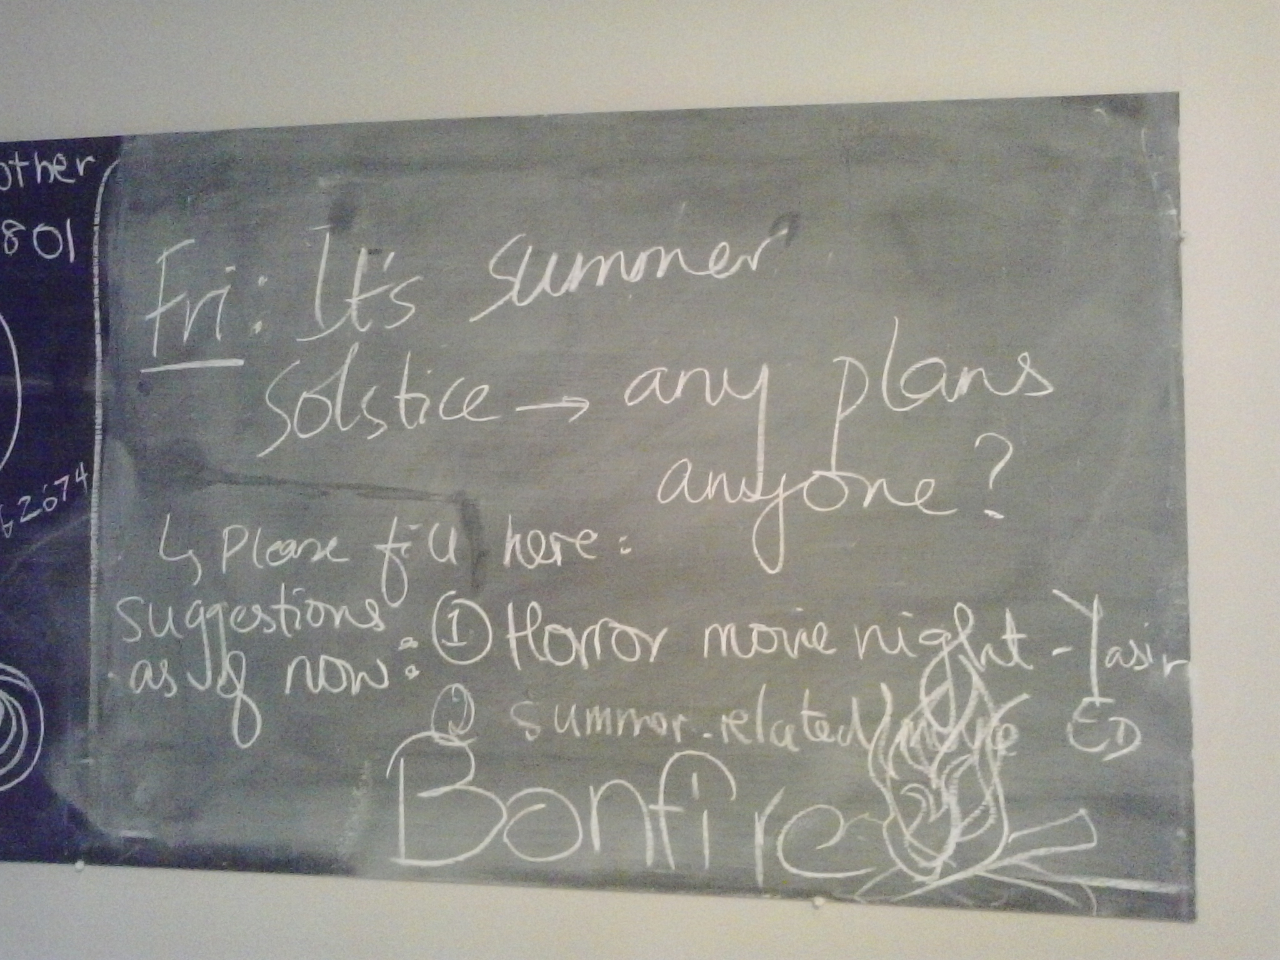 other
801
62674
Fri: It's summer
solstice → any plans
anyone?
↳ Please fill here:
suggestions
as of now:
① Horror movie night - Yasir
② summer-related movie ED
Bonfire